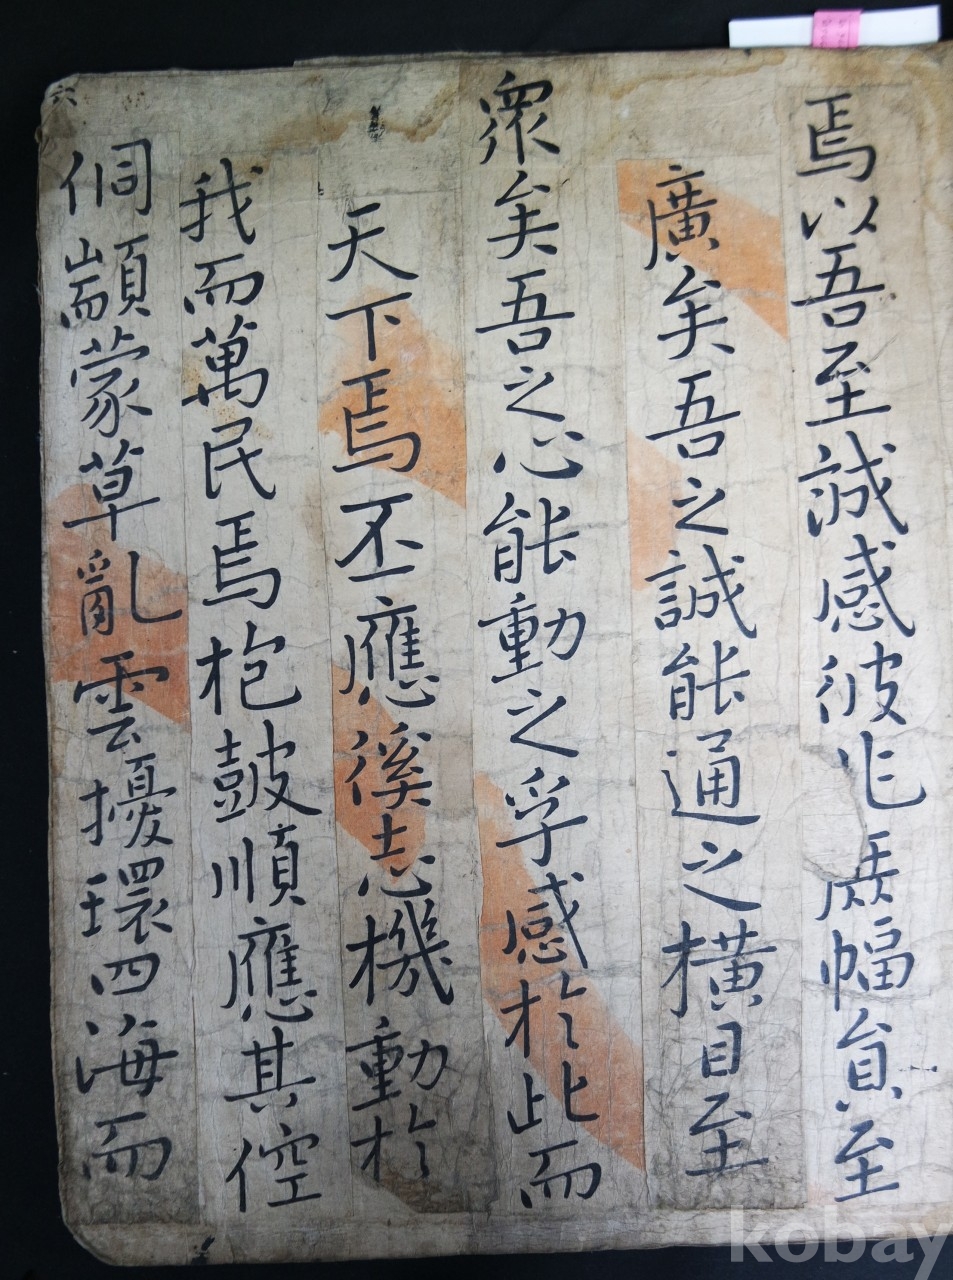 焉以吾至誠感彼幅員至
廣矣吾之誠能通之橫目至
衆矣吾之心能動之孚感於此而
天下焉丕應徯志機動於
我而萬民焉枹鼓順應其倥
侗顓蒙草亂雲擾環四海而
六
kobay